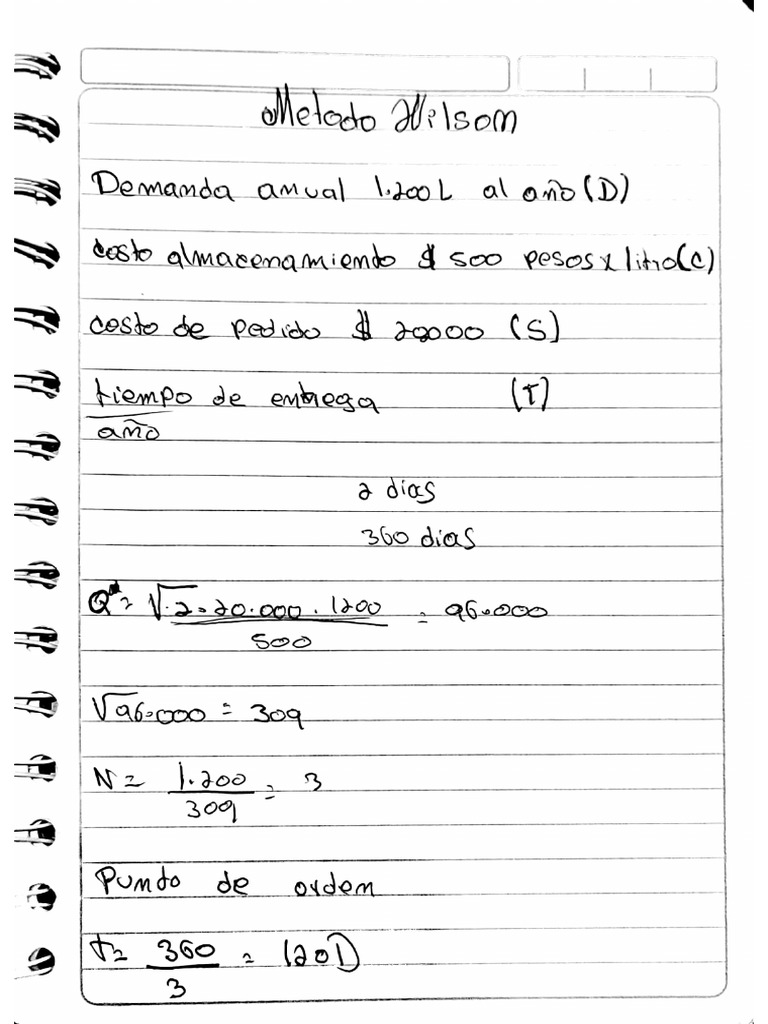 Metodo Wilsom
Demanda anual 1.200L al año (D)
costo almacenamiento $ 500 pesos x litro (C)
costo de pedido $ 20000 (S)
tiempo de entrega (T)
año
2 dias
360 dias
Q* = √2.20.000.1200 = 96.000
500
√96.000 = 309
N = 1.200 = 3
309
Punto de ordem
t = 360 = 120D
3